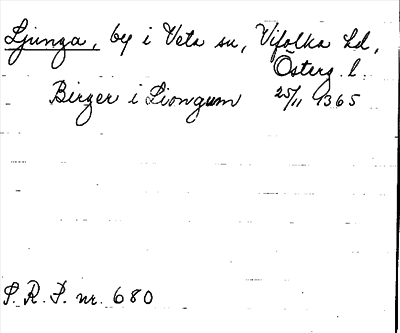 Ljunga, by i Veta sn, Vifolka hd,
Österg. l.
Birger i Liongum 25/11 1365
S. R. P. nr. 680